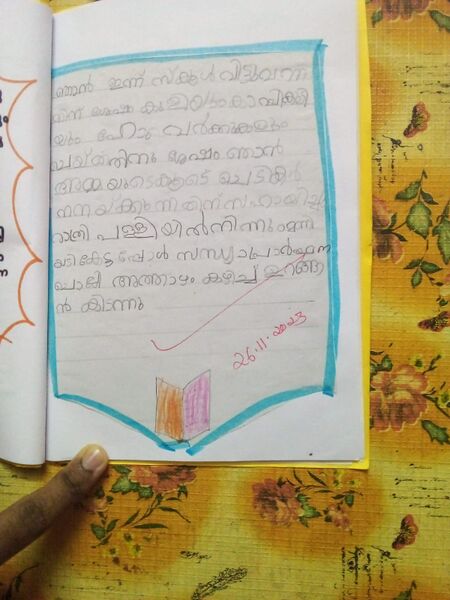 ഞാൻ ഇന്ന് സ്കൂൾ വിട്ടുവന്ന
തിന് ശേഷം കുളിയുംകാപ്പികുടി
യും ഹോം വർക്കുകളും
ചെയ്തതിനു ശേഷം ഞാൻ
അമ്മയുടെകൂടെ ചെടികൾ
നനയ്ക്കുന്നതിന് സഹായിച്ചു
രാത്രി പള്ളിയിൽനിന്നുംമണി
യടികേട്ടപ്പോൾ സന്ധ്യാപ്രാർത്ഥന
ചൊല്ലി അത്താഴം കഴിച്ച് ഉറങ്ങാ
ൻ കിടന്നു
26.11.2023